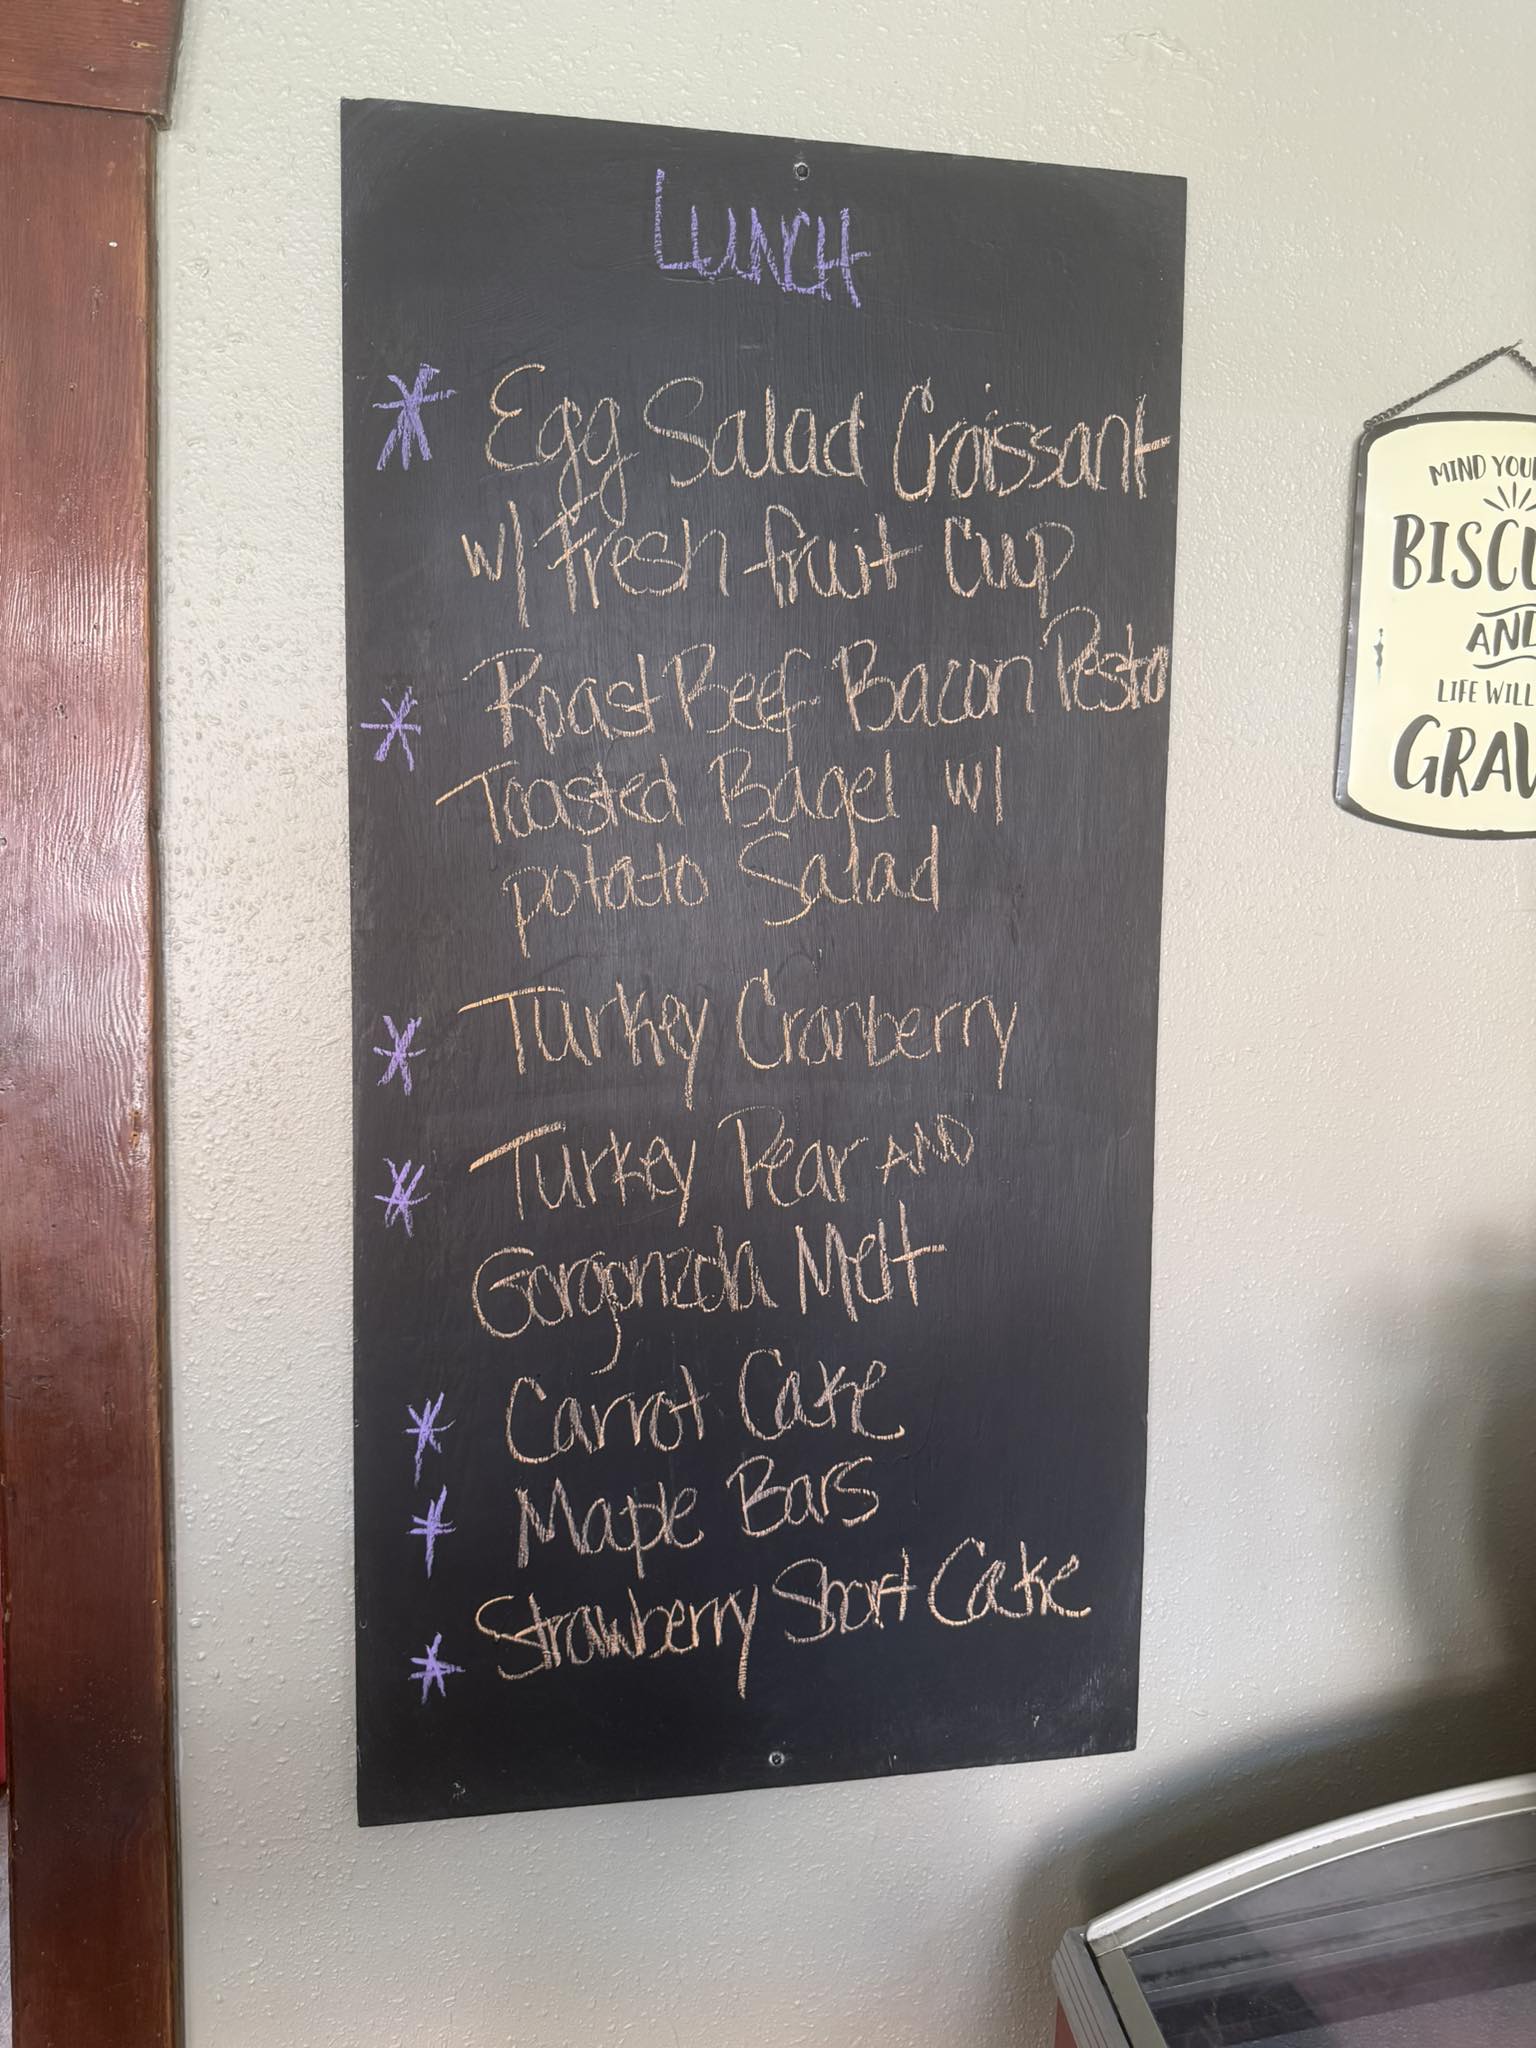 LUNCH
* Egg Salad Croissant
w/ Fresh fruit Cup
* Roast Beef Bacon Pesto
Toasted Bagel w/
potato Salad
* Turkey Cranberry
* Turkey Pear AND
Gorgonzola Melt
* Carrot Cake
* Maple Bars
* Strawberry Short Cake
MIND YOUR
BISCU
AND
LIFE WILL
GRAV